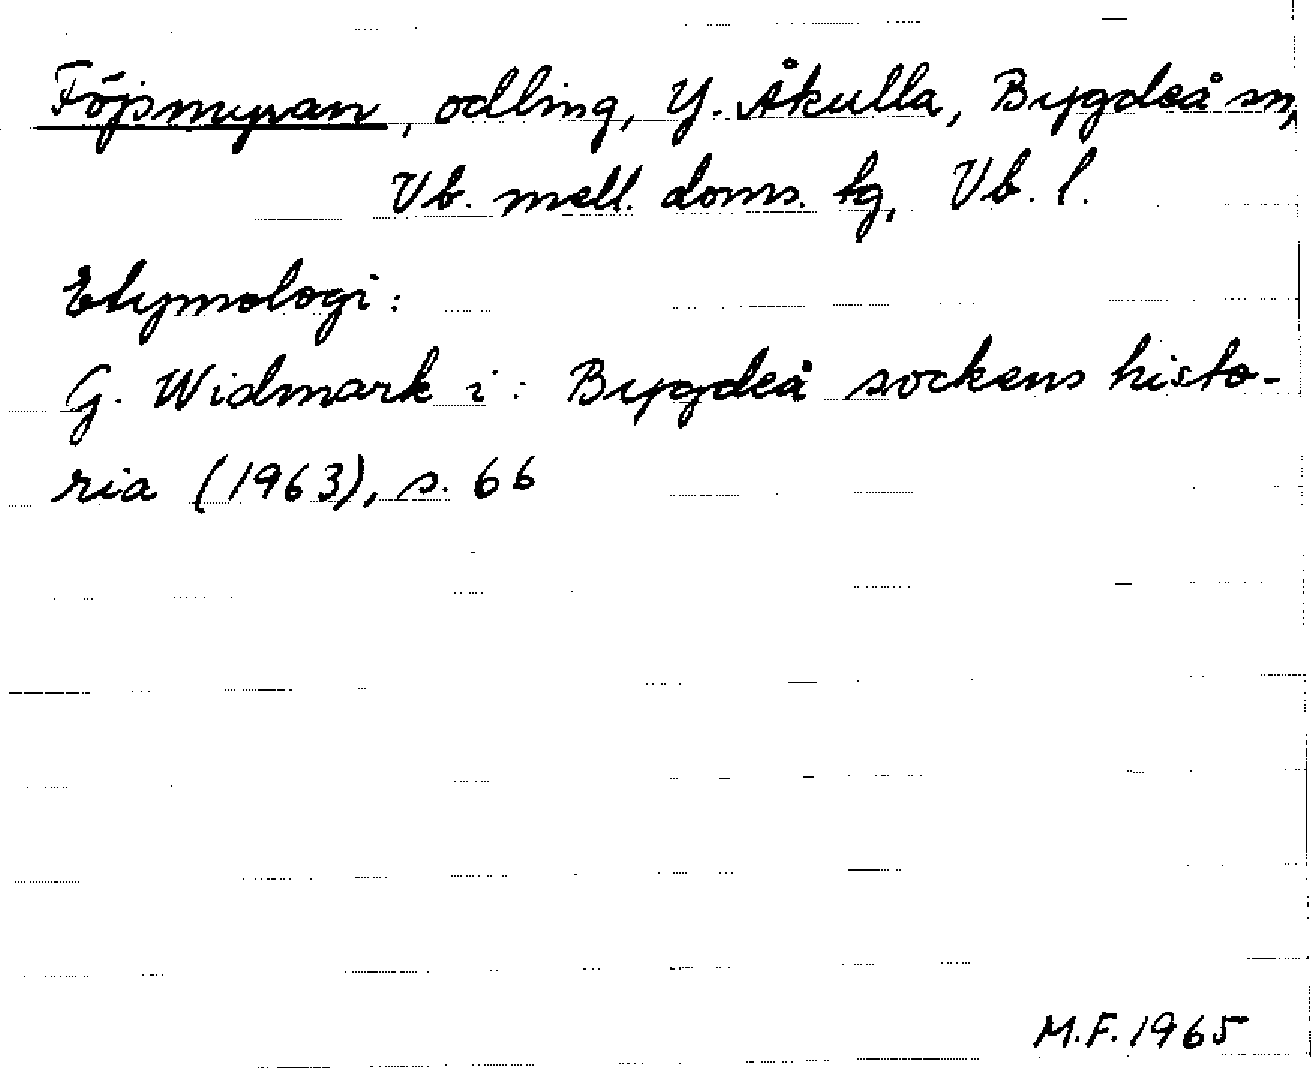 Föjsmyran, odling, Y. Åkulla, Bygdeå sn,
Vb. mell. doms. tg, Vb. l.
Etymologi:
G. Widmark i: Bygdeå sockens histo-
ria (1963), s. 66
M.F. 1965